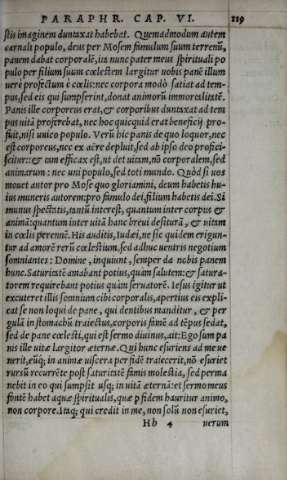 PARAPHR. CAP. VI. 119
stis imaginem duntaxat habebat. Quemadmodum autem
carnali populo, deus per Mosem famulum suum terrenū,
panem dabat corporalē, ita nunc pater meus spirituali po
pulo per filium suum cœlestem largitur uobis panē illum
uere profectum è cœlis: nec corpora modò satiat ad tem-
pus, sed eis qui sumpserint, donat animorū immortalitatē.
Panis ille corporeus erat, & corporibus duntaxat ad tem
pus uitā prosetrebat, nec hoc quicquid erat beneficij pro-
fuit, nisi unico populo. Verū hic panis de quo loquor, nec
est corporeus, nec ex aëre depluit, sed ab ipso deo profici-
scitur: & tam efficax est, ut det uitam, nō corporalem, sed
animarum: nec uni populo, sed toti mundo. Quòd si uos
mouet autor pro Mose quo gloriamini, deum habetis hu-
ius muneris autorem: pro famulo dei, filium habetis dei. Si
munus spectatis, tantū interest, quantum inter corpus &
animā: quantum inter uitā hanc breui desiturā, & uitam
in cœlis perennē. His auditis, Iudæi, ne sic quidem erigun-
tur ad amorē rerū cœlestium, sed adhuc uentris negotium
somniantes: Domine, inquiunt, semper da nobis panem
hunc. Saturitatē amabant potius, quàm salutem: & satura-
torem requirebant potius quàm seruatorē. Iesus igitur ut
excuteret illis somnium cibi corporalis, apertius eis expli-
cat se non loqui de pane, qui dentibus manditur, & per
gulā in stomachū traiectus, corporis famē ad tēpus sedat,
sed de pane cœlesti, qui est sermo diuinus, ait: Ego sum pa
nis ille uitæ largitor æternæ. Qui hunc esuriens ad me ue
nerit, eūq; in animæ uiscera per fidē traiecerit, nō esuriet
rursū recurrēte post saturitatē famis molestia, sed perma
nebit in eo qui sumpsit usq; in uitā æternā: et sermo meus
fontē habet aquæ spiritualis, quæ p fidem hauritur animo,
non corpore. Itaq; qui credit in me, non solū non esuriet,
Hh 4 uerum